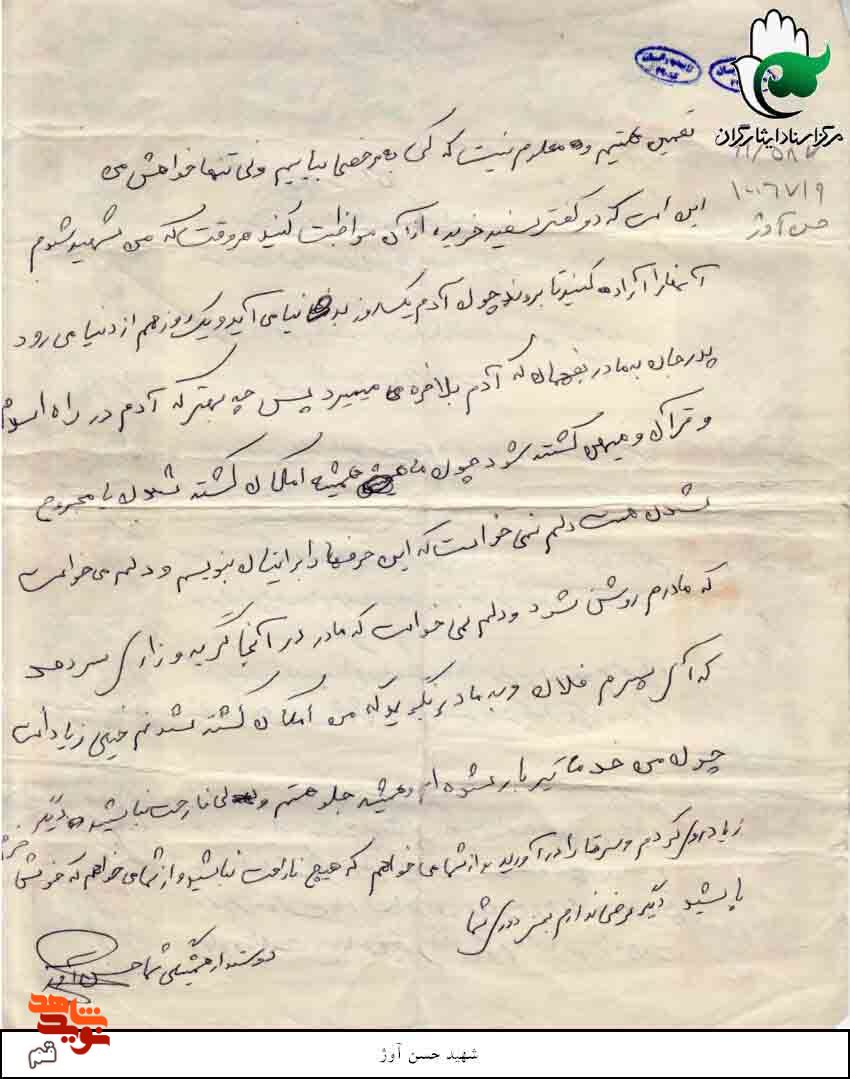 مرکز اسناد ایثارگران
۱۰۰۶۷۱۹
حسن آوژ
تعمین هستیم و معلوم نیست که کی به مرخصی بیاییم ولی تنها خواهش می
این است که دو کفتر سفید خریده از آن مواظبت کنید هر وقت که من شهید شدم
آنها را آزاده کنید تا بروند چون آدم یک روز به دنیا می آید و یک روز هم از دنیا می رود
پدر جان به مادر بفهمان که آدم بلاخره می میمیرد پس چه بهتر که آدم در راه اسلام
و قرآن و میهن کشته شود چون ما همیشه امکان کشته شدن یا مجروح
شدن هست دلم نمی خواست که این حرفها را برایتان بنویسم و دلم می خواست
که مادرم روشن شود و دلم نمی خواست که مادر در آنجا گریه و زاری سر دهد
که آی پسرم فلان و به مادر بگویید که من امکان کشته شدنم خیلی زیاد است
چون من خدمه تیربار شده ام و همیشه جلو هستم ولی ناراحت نباشید دیگر
زیاد روی کردم و سر شما را درد آوردید از شما می خواهم که هیچ ناراحت نباشید و از شما می خواهم که خوش
باشید دیگر عرضی ندارم بجز دوری شما
دوستدار همیشگی شما حسن آوژ
نوید شاهد
قم
شهید حسن آوژ